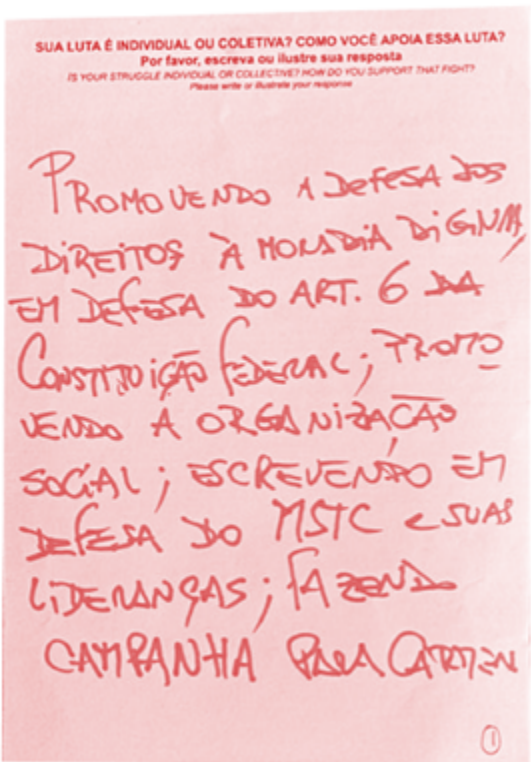 SUA LUTA É INDIVIDUAL OU COLETIVA? COMO VOCÊ APOIA ESSA LUTA?
Por favor, escreva ou ilustre sua resposta
IS YOUR STRUGGLE INDIVIDUAL OR COLLECTIVE? HOW DO YOU SUPPORT THAT FIGHT?
Please write or illustrate your response
PROMOVENDO A DEFESA DOS
DIREITOS À MORADIA DIGNA,
EM DEFESA DO ART. 6 DA
CONSTITUIÇÃO FEDERAL; PROMO
VENDO A ORGANIZAÇÃO
SOCIAL; ESCREVENDO EM
DEFESA DO MSTC e SUAS
LIDERANÇAS; FAZENDO
CAMPANHA PARA CARMEN
1